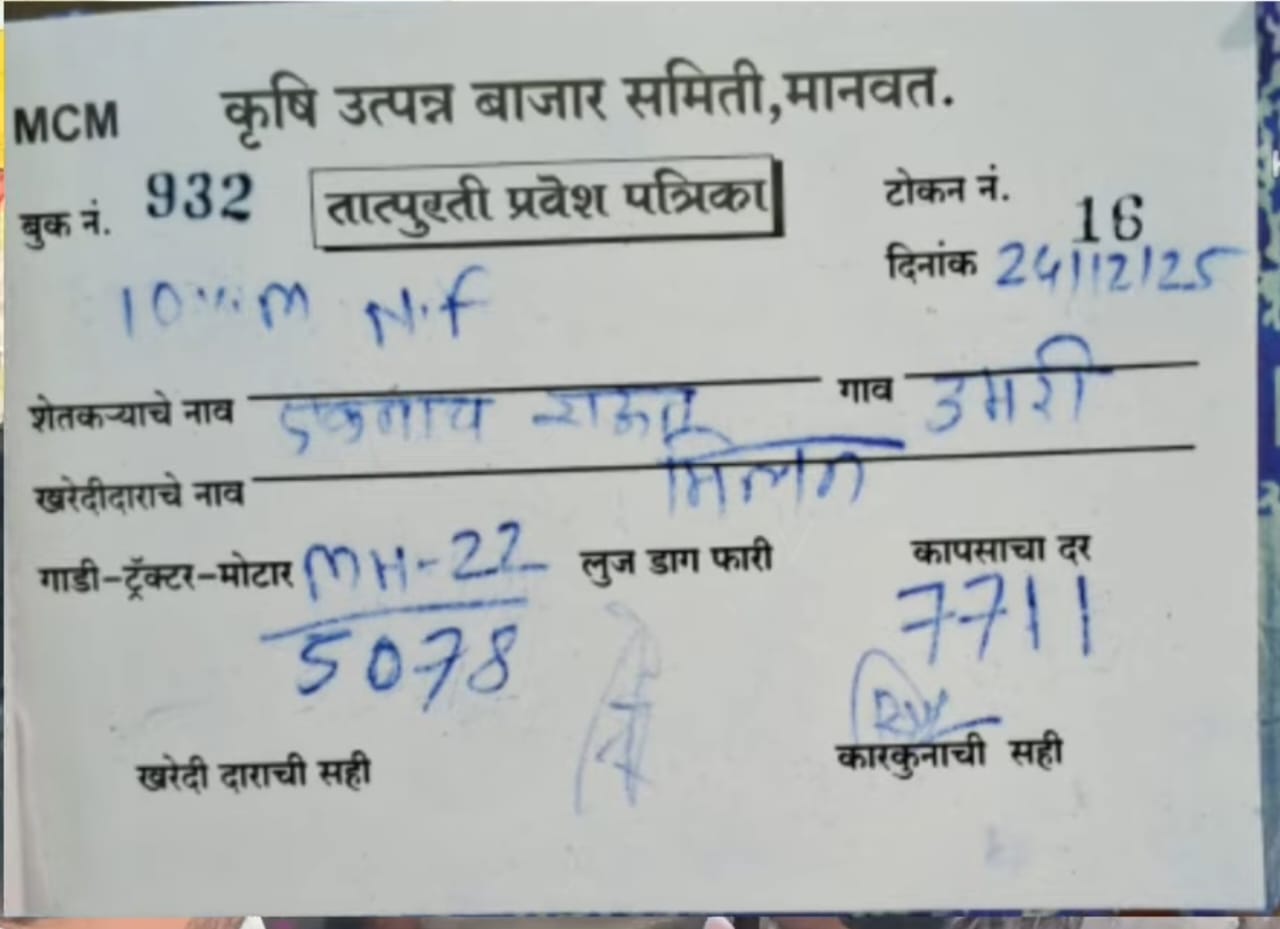 MCM कृषि उत्पन्न बाजार समिती,मानवत.
बुक नं. 932 तात्पुरती प्रवेश पत्रिका टोकन नं. 16
दिनांक 24/12/25
10 M N.f
शेतकऱ्याचे नाव एकनाथ राऊत गाव उमरी
खरेदीदाराचे नाव मिलन
गाडी-ट्रॅक्टर-मोटार MH-22 लुज डाग फारी कापसाचा दर
5078 7711
खरेदी दाराची सही कारकुनाची सही